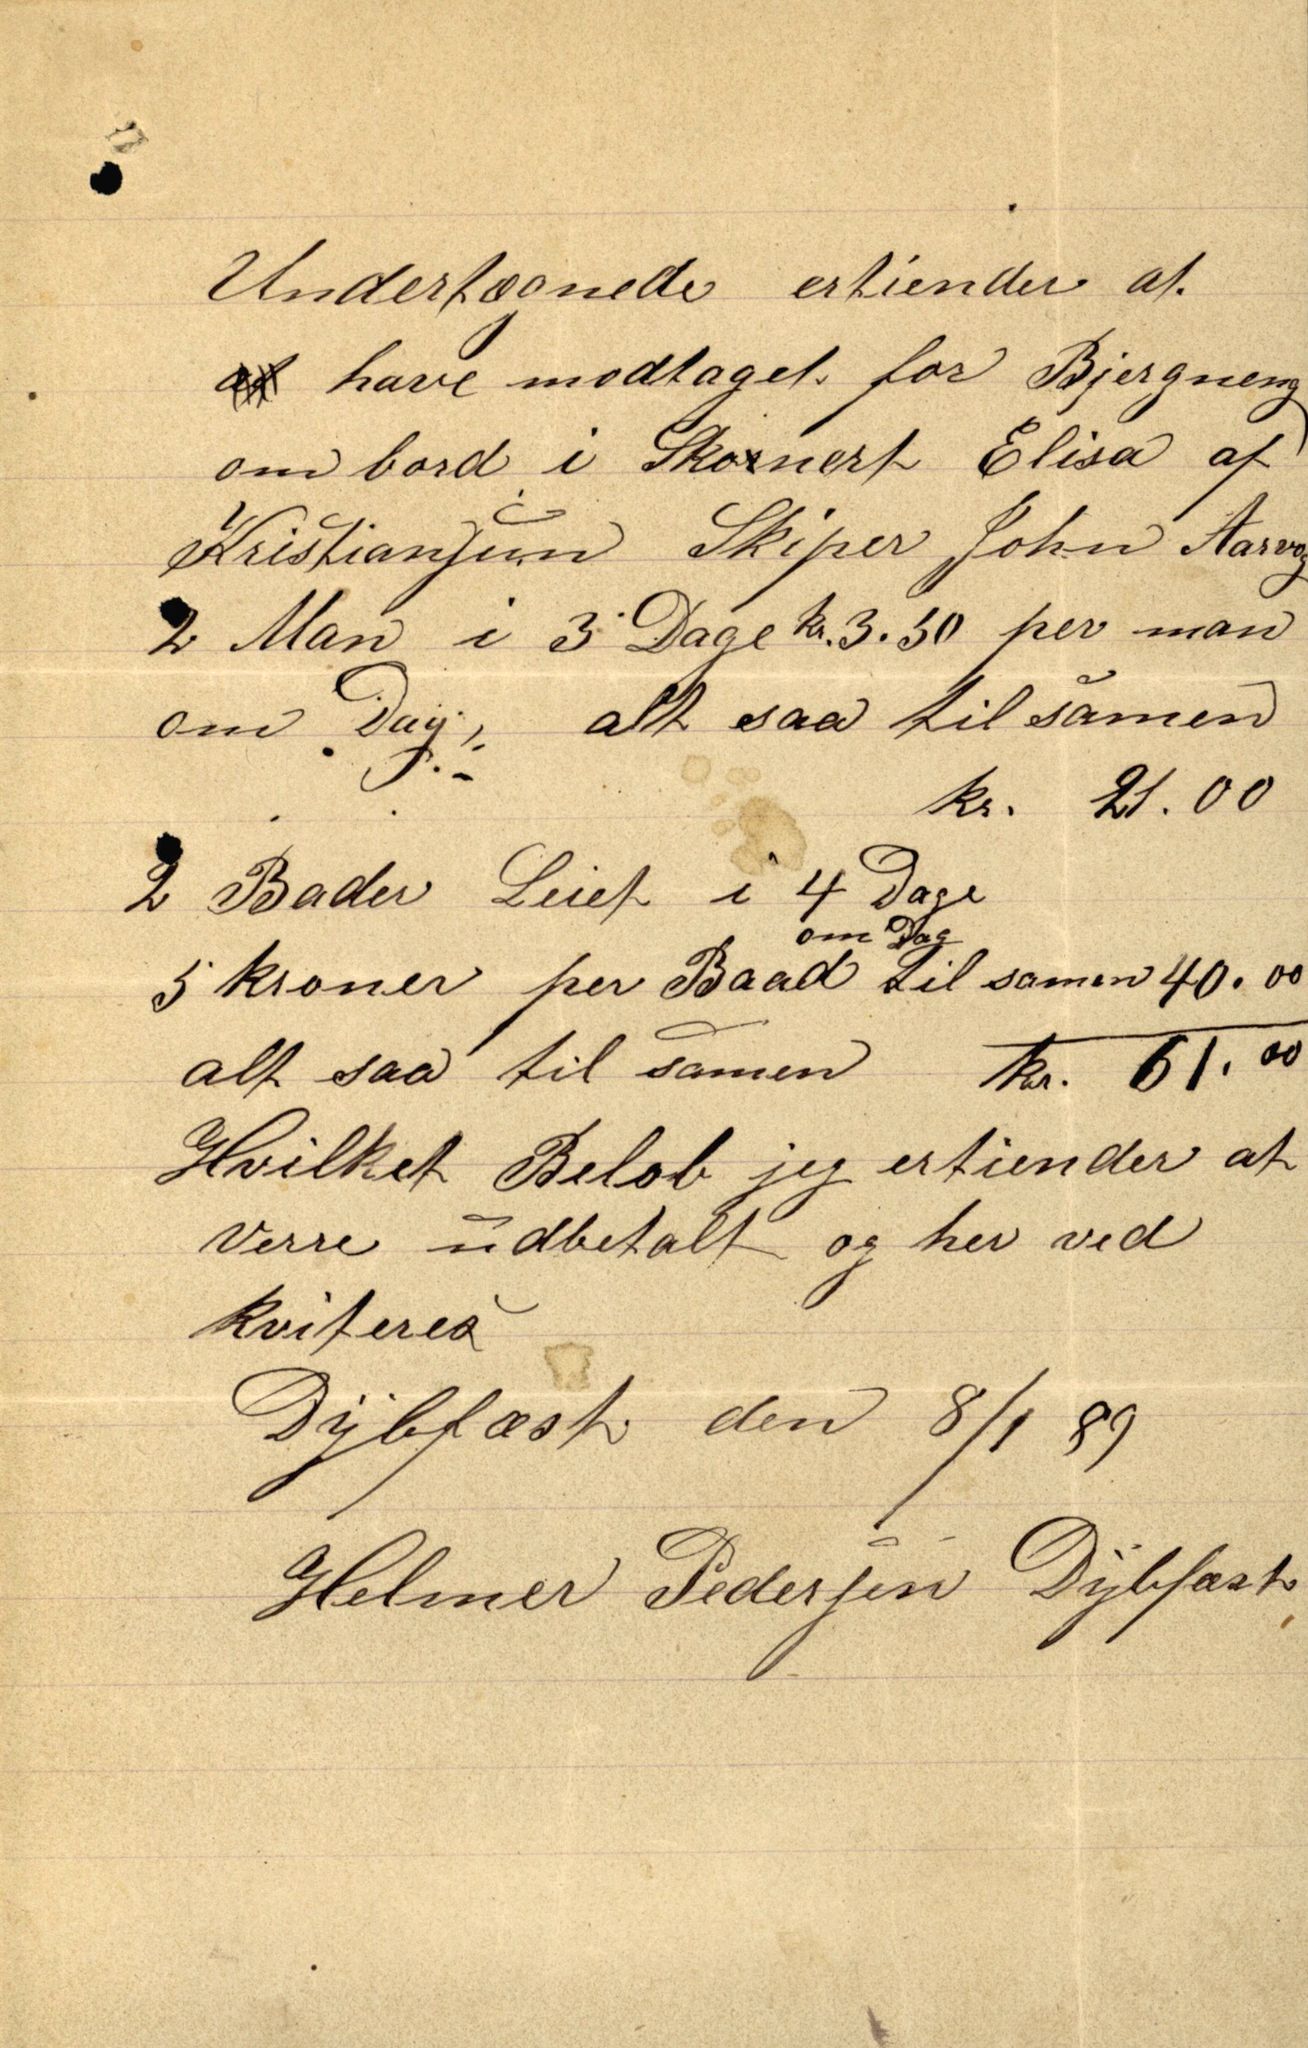 Undertægnede ertiender at
have modtaget for Bjergneng
om bord i Skonert Elisa af
Kristiansun Skiper John Aarvog
2 Man i 3 Dage kr. 3.50 per man
om Dag, alt saa til samen
kr. 21.00
2 Bader Leiet i 4 Dage
om Dag
5 kroner per Baad til samen 40.00
alt saa til samen kr. 61.00
Hvilket Belob jeg ertiender at
verre udbetalt og her ved
kviteres
Dybfæst den 8/1 89
Helmer Pedersen Dybfæst